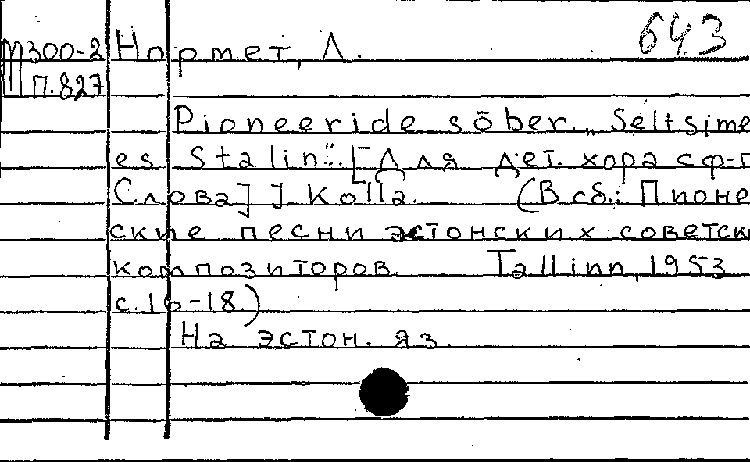 643
М300-2 Нормет, Л.
П.827
Pioneeride sõber. „Seltsime
es Stalin“. [Для дет. хора с ф-п
Слова] J. Kolla. (В сб.: Пионе
ские песни эстонских советск
композиторов. Tallinn, 1953
с.16-18.)
На эстон. яз.